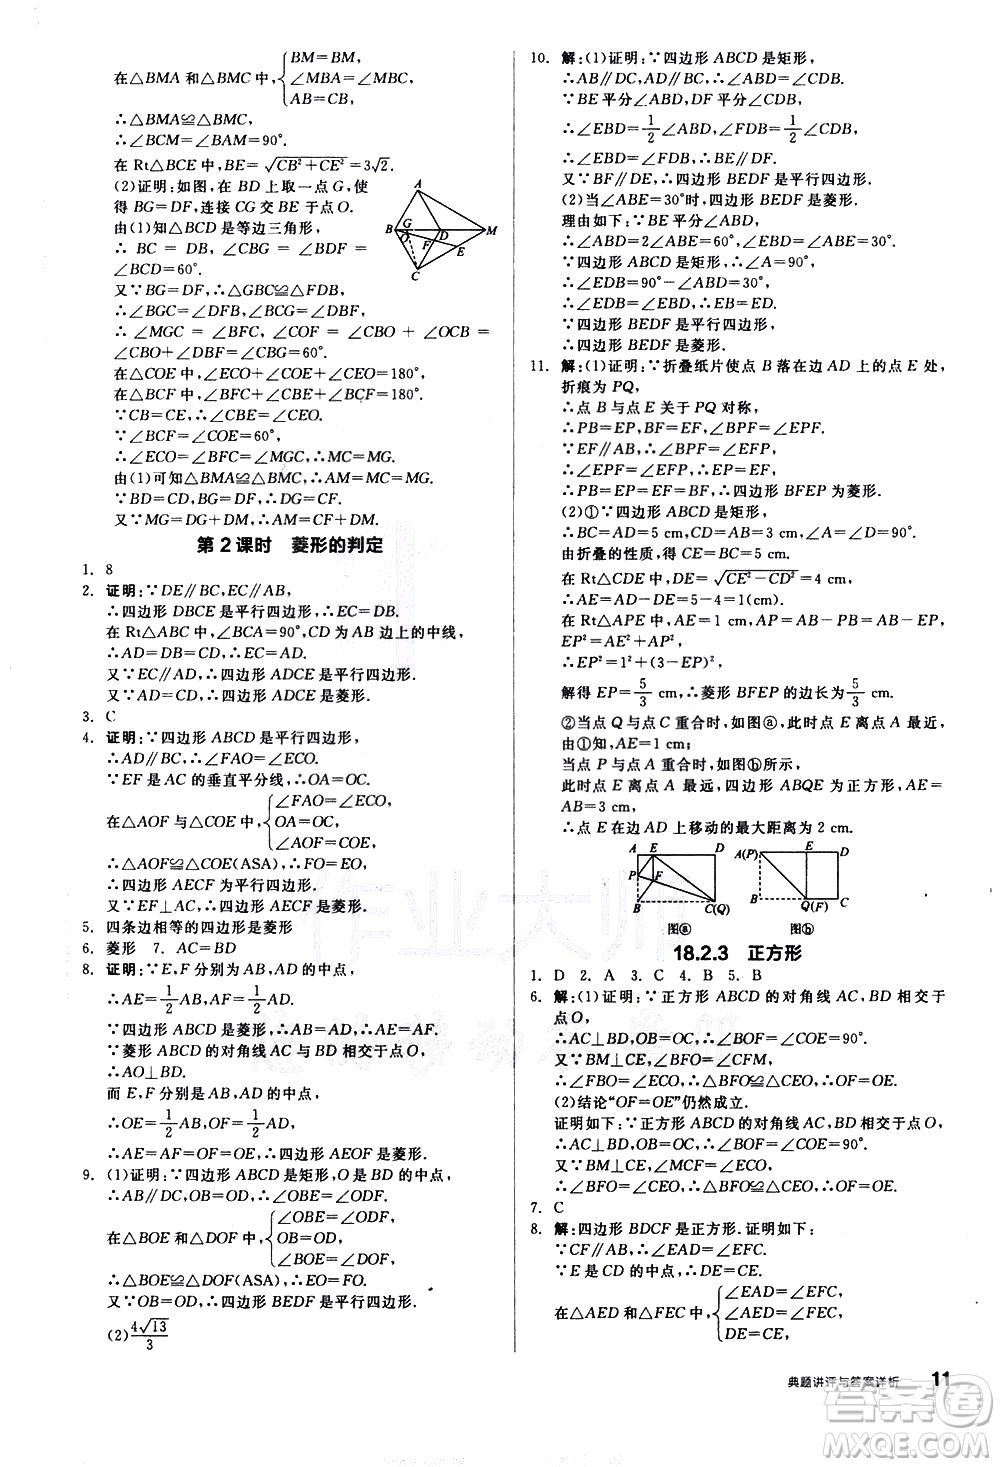 BM=BM,
在△BMA 和△BMC 中, ∠MBA=∠MBC,
AB=CB,
∴△BMA≌△BMC,
∴∠BCM=∠BAM=90°.
在 Rt△BCE 中,BE=√(CB²+CE²)=3√2.
(2)证明:如图,在 BD 上取一点 G,使
得 BG=DF,连接 CG 交 BE 于点 O.
由(1)知△BCD 是等边三角形,
∴ BC = DB, ∠CBG = ∠DBC =
∠BCD=60°.
又∵BG=DF,∴△GBC≌△FDB,
∴∠BGC=∠DFB,∠BCG=∠DBF,
∴ ∠MGC = ∠BFC, ∠COF = ∠CBO + ∠OCB =
∠CBO+∠DBF=∠CBG=60°.
在△COE 中,∠ECO+∠COE+∠CEO=180°,
在△BCF 中,∠BFC+∠CBE+∠BCF=180°.
∵CB=CE,∴∠CBE=∠CEO.
∵∠BCF=∠COE=60°,
∴∠ECO=∠BFC=∠MGC,∴MC=MG.
由(1)可知△BMA≌△BMC,∴AM=MC=MG.
∵BD=CD,BG=DF,∴DG=CF.
又∵MG=DG+DM,∴AM=CF+DM.
A
B
G
O
D
F
E
M
C
第 2 课时 菱形的判定
1. 8
2. 证明:∵DE∥BC,EC∥AB,
∴四边形 DBCE 是平行四边形,∴EC=DB.
在 Rt△ABC 中,∠ACB=90°,CD 为 AB 边上的中线,
∴AD=DB=CD,∴EC=AD.
又∵EC∥AD,∴四边形 ADCE 是平行四边形.
又∵AD=CD,∴四边形 ADCE 是菱形.
3. C
4. 证明:∵四边形 ABCD 是平行四边形,
∴AD∥BC,∴∠FAO=∠ECO.
∵EF 是 AC 的垂直平分线,∴OA=OC.
∠FAO=∠ECO,
在△AOF 与△COE 中, OA=OC,
∠AOF=∠COE,
∴△AOF≌△COE(ASA),∴FO=EO,
∴四边形 AECF 为平行四边形.
又∵EF⊥AC,∴四边形 AECF 为菱形.
5. 四条边相等的四边形是菱形
6. 菱形 7. AC=BD
8. 证明:∵E,F 分别为 AB,AD 的中点,
∴AE=1/2AB,AF=1/2AD.
∵四边形 ABCD 是菱形,∴AB=AD,∴AE=AF.
∵菱形 ABCD 的对角线AC与BD 相交于点O,
∴AO⊥BD.
而 E,F 分别是 AB,AD 的中点,
∴OE=1/2AB,OF=1/2AD,
∴AE=AF=OF=OE,∴四边形 AEOF 是菱形.
9. (1)证明:∵四边形 ABCD 是矩形,O 是 BD 的中点,
∴AB∥DC,OB=OD,∴∠OBE=∠ODF.
∠OBE=∠ODF,
在△BOE 和△DOF 中, OB=OD,
∠BOE=∠DOF,
∴△BOE≌△DOF(ASA),∴EO=FO.
又∵OB=OD,∴四边形 BEDF 是平行四边形.
(2)4√13/3
10. 解:(1)证明:∵四边形 ABCD 是矩形,
∴AB∥DC,AD∥BC,∴∠ABD=∠CDB.
∵BE 平分∠ABD,DF 平分∠CDB,
∴∠EBD=1/2∠ABD,∠FDB=1/2∠CDB,
∴∠EBD=∠FDB,∴BE∥DF.
又∵BF∥DE,∴四边形 BEDF 是平行四边形.
(2)当∠ABE=30°时,四边形 BEDF 是菱形.
理由如下:∵BE 平分∠ABD,
∴∠ABD=2∠ABE=60°,∠EBD=∠ABE=30°.
∵四边形 ABCD 是矩形,∴∠A=90°,
∴∠EDB=90°-∠ABD=30°,
∴∠EDB=∠EBD=30°,∴EB=ED.
∵四边形 BEDF 是平行四边形,
∴四边形 BEDF 是菱形.
11. 解:(1)证明:∵折叠纸片使点 B 落在边 AD 上的点 E 处,
折痕为 PQ,
∴点 B 与点 E 关于 PQ 对称,
∴PB=EP,BF=EF,∠BPF=∠EPF.
∵EF∥AB,∴∠BPF=∠EFP,
∴∠EPF=∠EFP,∴EP=EF,
∴PB=EP=EF=BF,∴四边形 BFEP 为菱形.
(2)①∵四边形 ABCD 是矩形,
∴BC=AD=5 cm,CD=AB=3 cm,∠A=∠D=90°.
由折叠的性质,得 CE=BC=5 cm.
在 Rt△CDE 中,DE=√(CE²-CD²)=4 cm,
∴AE=AD-DE=5-4=1(cm).
在 Rt△APE 中,AE=1 cm,AP=AB-PB=AB-EP,
EP²=AE²+AP²,
∴EP²=1²+(3-EP)²,
解得 EP=5/3 cm,∴菱形 BFEP 的边长为5/3 cm.
②当点 Q 与点 C 重合时,如图ⓐ,此时点 E 离点 A 最近,
由①知,AE=1 cm;
当点 P 与点 A 重合时,如图ⓑ所示,
此时点 E 离点 A 最远,四边形 ABQE 为正方形,AE=
AB=3 cm,
∴点 E 在边 AD 上移动的最大距离为 2 cm.
A E D
P F
B C(Q)
图ⓐ
A(P) E D
B Q(F) C
图ⓑ
18.2.3 正方形
1. D 2. A 3. C 4. B 5. B
6. 解:(1)证明:∵正方形 ABCD 的对角线 AC,BD 相交于
点 O,
∴AC⊥BD,OB=OC,∴∠BOF=∠COE=90°.
又∵BM⊥CE,∠BFO=∠CFM,
∴∠FBO=∠ECO,∴△BFO≌△CEO,∴OF=OE.
(2)结论“OF=OE”仍然成立.
证明如下:∵正方形 ABCD 的对角线 AC,BD 相交于点 O,
∴AC⊥BD,OB=OC,∴∠BOF=∠COE=90°.
又∵BM⊥CE,∴∠MCF=∠OBF,
∴∠BFO=∠CEO,∴△BFO≌△CEO,∴OF=OE.
7. C
8. 解:四边形 BDCF 是正方形.证明如下:
∵CF∥AB,∴∠EAD=∠EFC.
∵E 是 CD 的中点,∴DE=CE.
∠EAD=∠EFC,
在△AED 和△FEC 中, ∠AED=∠FEC,
DE=CE,
典题讲评与答案详析 11
作业大师
答案圈
MXQE.COM